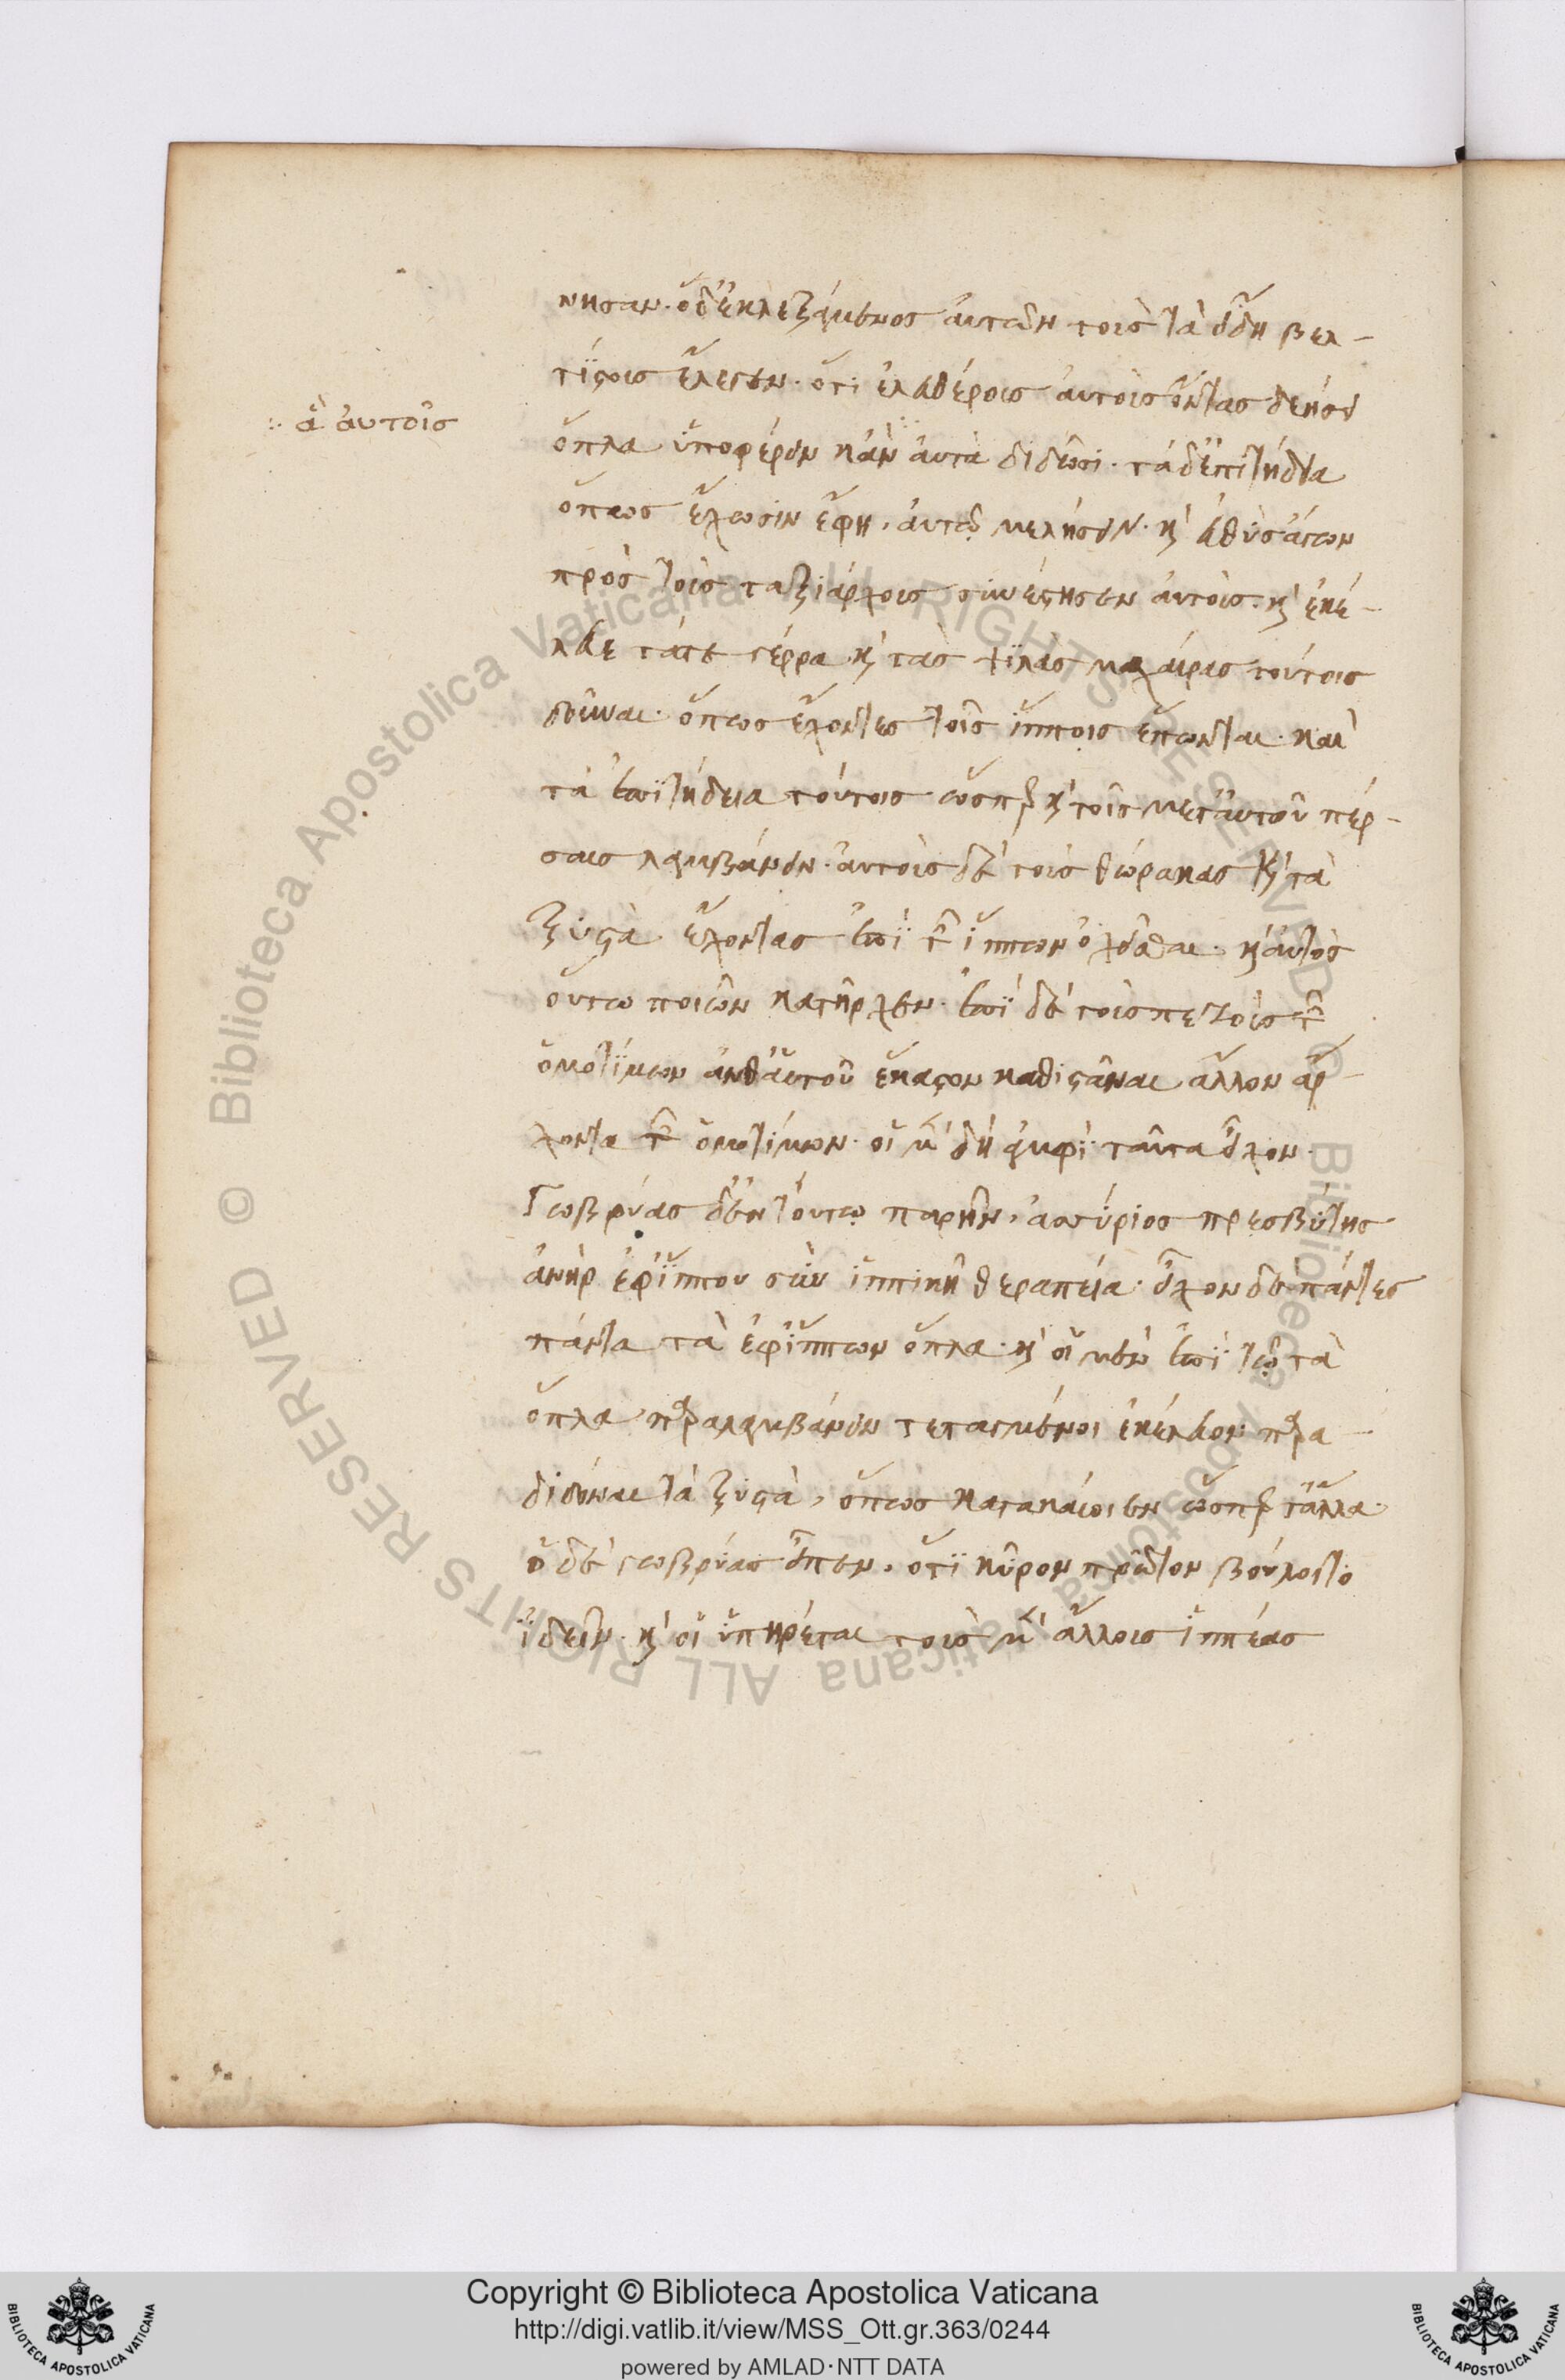 νησαν. ὁ δ' ἐκλεξάμενος αὐτῶν τοὺς τὰ εἴδη βελ-
τίστους ἔλεγεν. ὅτι ἐλευθέρους αὐτοὺς ὄντας δεήσει
∴ ἃ αὐτοῖς
ὅπλα ὑποφέρειν κἂν αὐτὰ διδῶσι. τὰ δ' ἐπιτήδεια
ὅπως ἔχωσιν ἔφη, αὐτῷ μελήσειν. καὶ εὐθὺς ἄγων
πρὸς τοὺς ταξιάρχους συνέστησεν αὐτούς. καὶ ἐκέ-
λευε τάτε γέρρα καὶ τὰς ψιλὰς μαχαίρας τούτοις
δοῦναι. ὅπως ἔχοντες τοῖς ἵπποις ἕπωνται. καὶ
τὰ ἐπιτήδεια τούτοις ὥσπερ καὶ τοῖς μετ' αὐτοῦ πέρ-
σαις λαμβάνειν. αὐτοὺς δὲ τοὺς θώρακας καὶ τὰ
ξυστὰ ἔχοντας ἐπὶ τῶν ἵππων ὀχεῖσθαι. καὶ αὐτὸς
οὕτω ποιῶν κατῆρχεν. ἐπὶ δὲ τοὺς πεζοὺς τῶν
ὁμοτίμων ἀνθ' αὑτοῦ ἕκαστον καθιστάναι ἄλλον ἄρ-
χοντα τῶν ὁμοτίμων. οἱ μὲν δὴ ἀμφὶ ταῦτα εἶχον.
Γωβρύας δ' ἐν τούτῳ παρῆν, ἀσσύριος πρεσβύτης
ἀνὴρ ἐφ' ἵππου σὺν ἱππικῇ θεραπείᾳ. εἶχον δὲ πάντες
πάντα τὰ ἐφίππων ὅπλα. καὶ οἱ μὲν ἐπὶ τῷ τὰ
ὅπλα παραλαμβάνειν τεταγμένοι ἐκέλευον παρα-
διδόναι τὰ ξυστὰ, ὅπως κατακαίοιεν ὥσπερ τἆλλα.
ὁ δὲ γωβρύας εἶπεν, ὅτι κῦρον πρῶτον βούλοιτο
ἰδεῖν. καὶ οἱ ὑπηρέται τοὺς μὲν ἄλλους ἱππέας
Biblioteca Apostolica Vaticana ALL RIGHTS RESERVED ©
Biblioteca Apostolica Vaticana ALL RIGHTS RESERVED ©
Copyright © Biblioteca Apostolica Vaticana
http://digi.vatlib.it/view/MSS_Ott.gr.363/0244
powered by AMLAD·NTT DATA
BIBLIOTECA APOSTOLICA VATICANA
BIBLIOTECA APOSTOLICA VATICANA